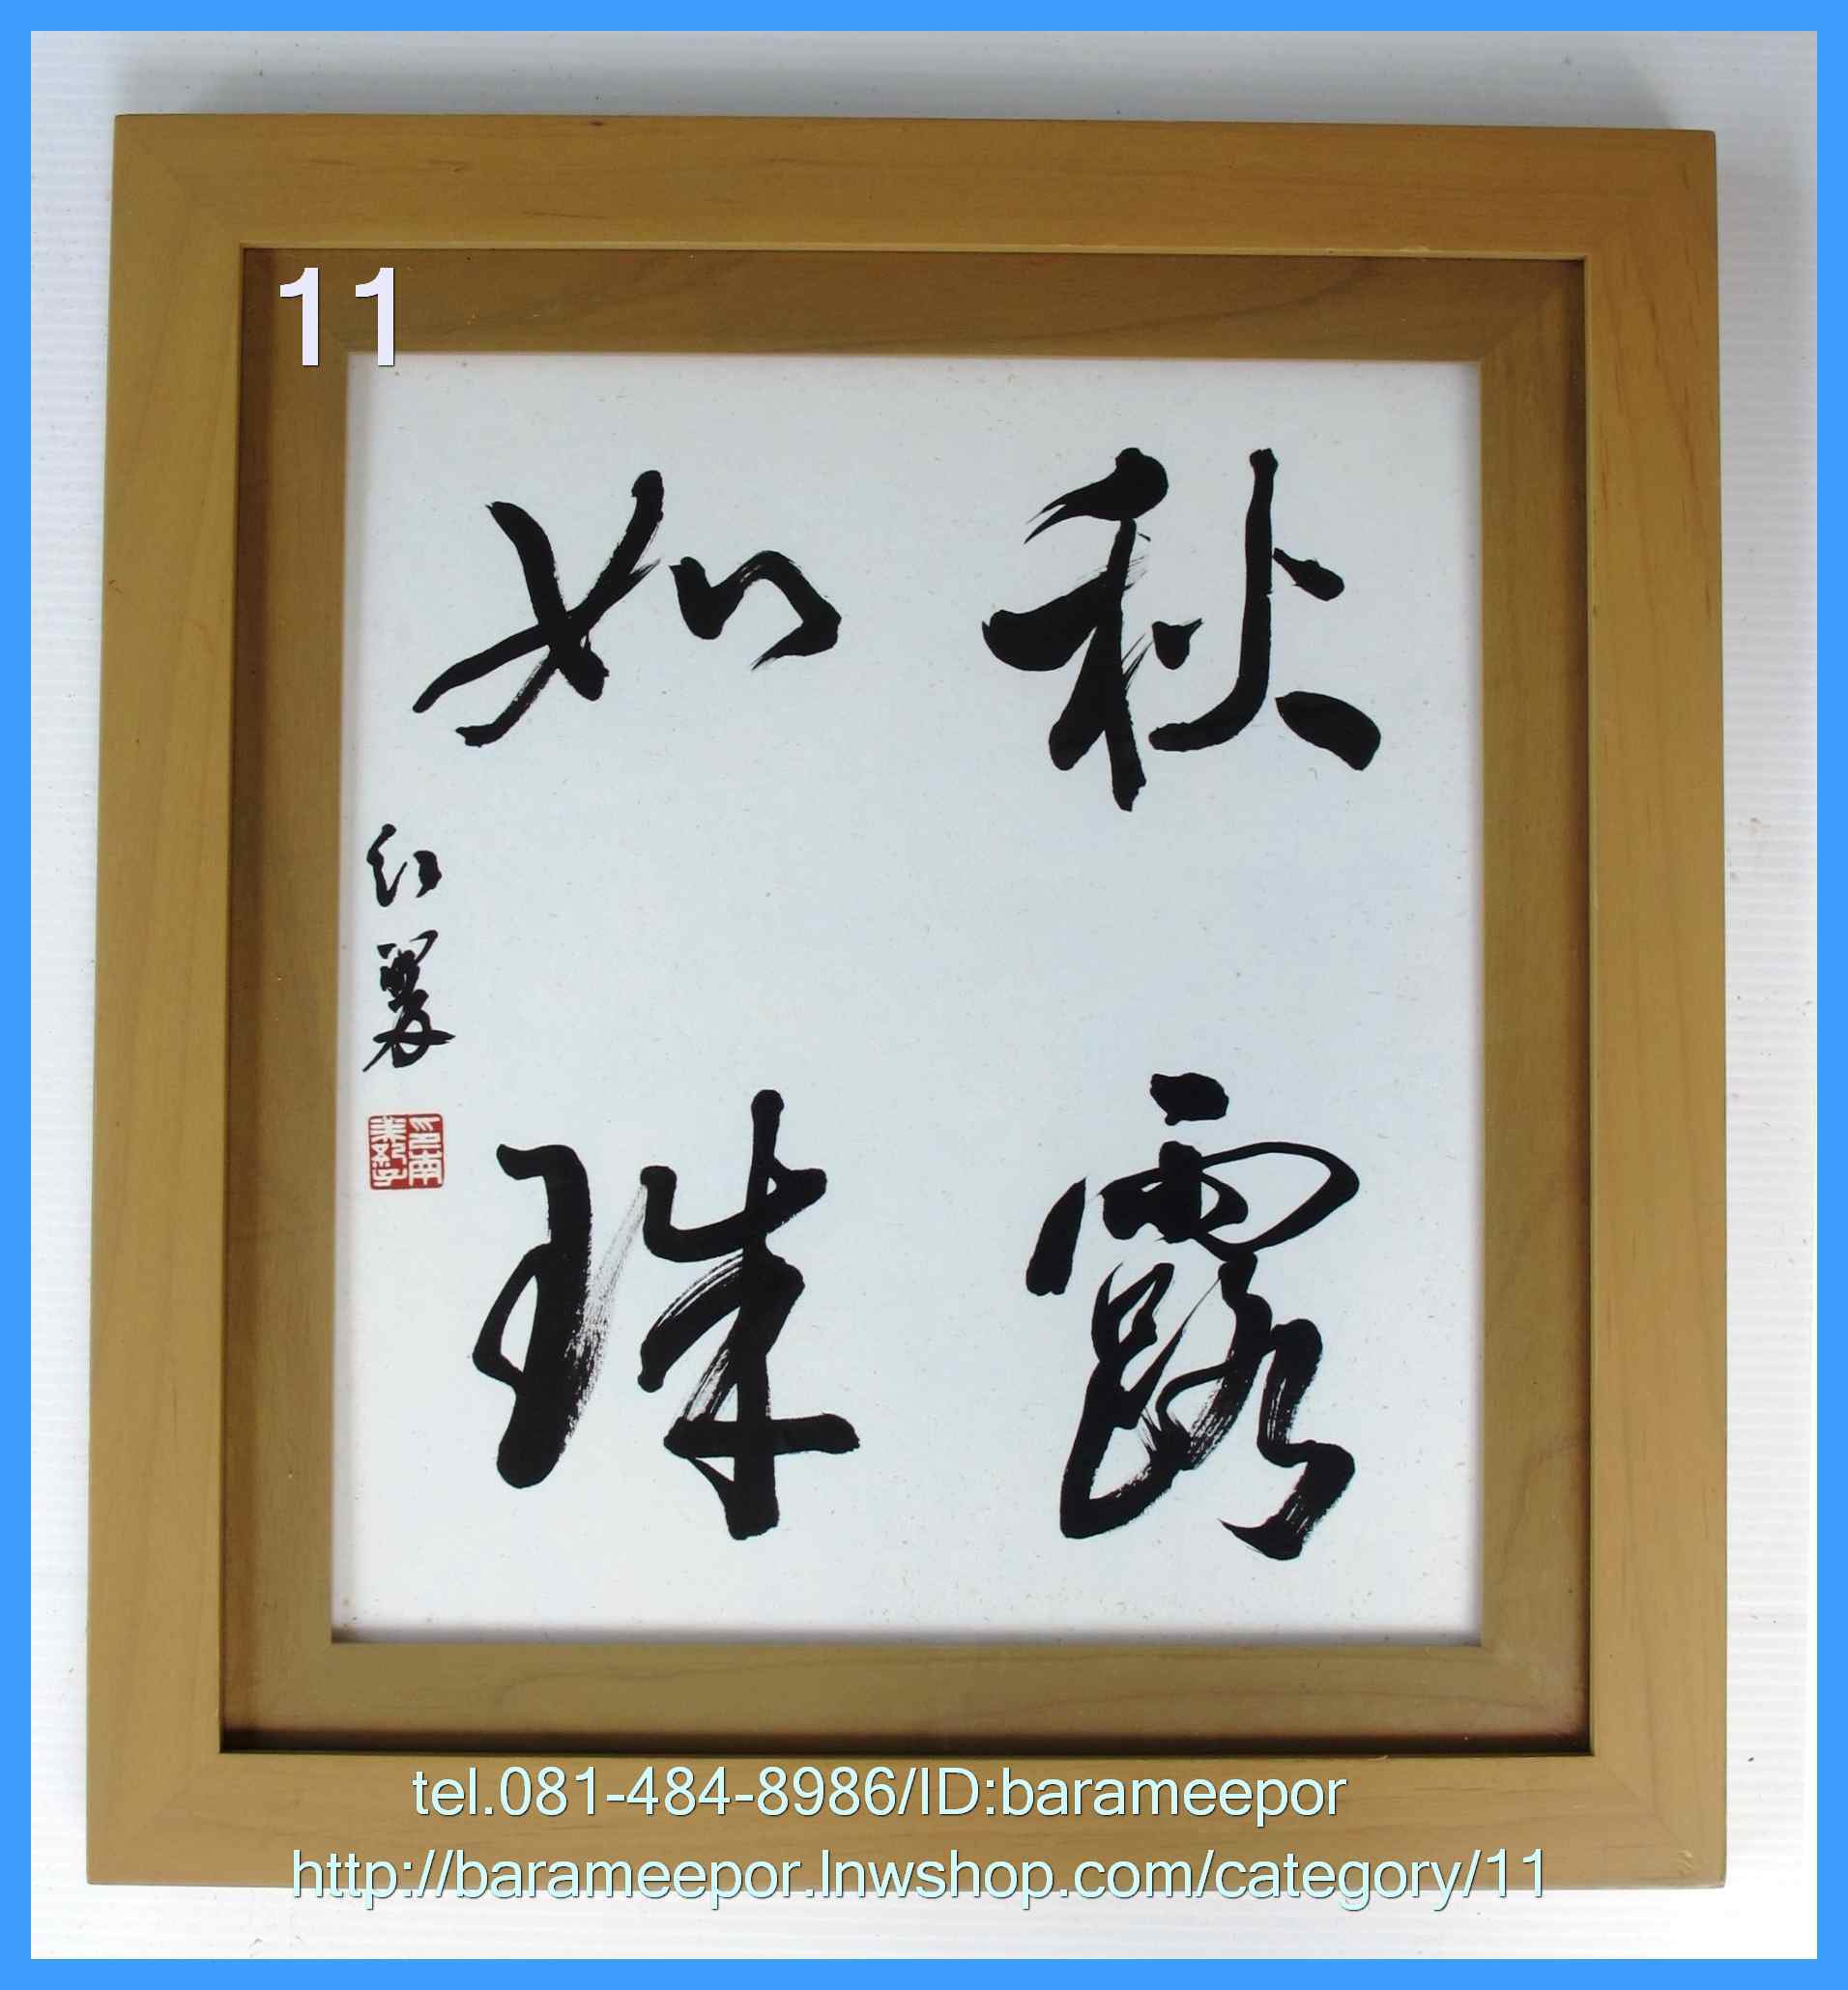 11
秋露
如珠
tel.081-484-8986/ID:barameepor
http://barameepor.lnwshop.com/category/11